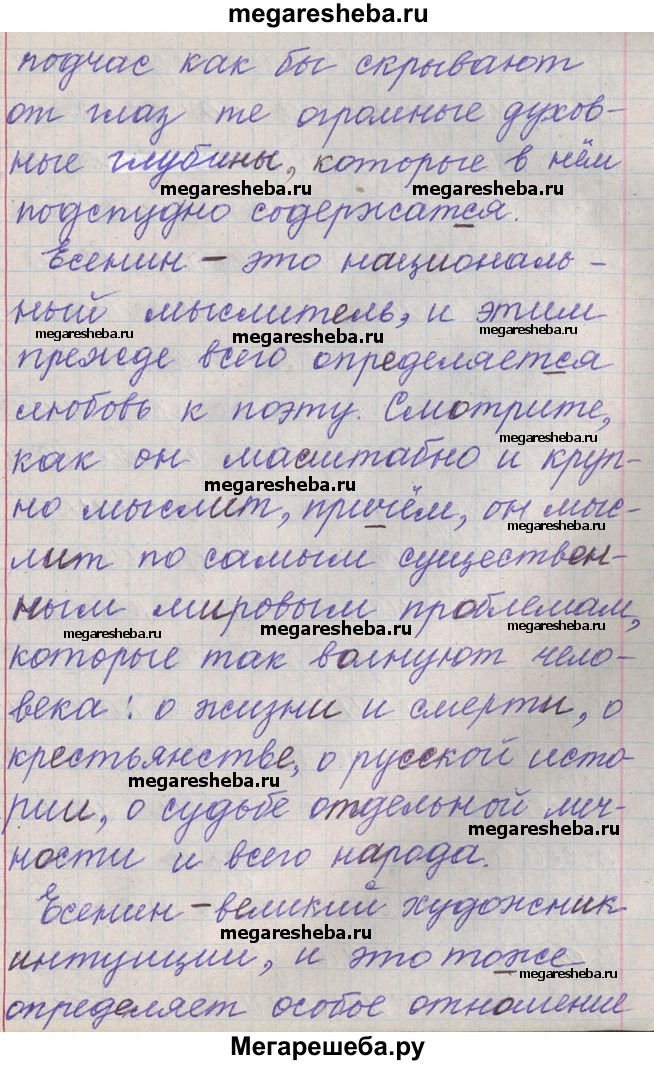 megaresheba.ru
подчас как бы скрывают
от глаз те огромные духов-
ные глубины, которые в нём
megaresheba.ru megaresheba.ru
подспудно содержатся.
Есенин – это националь-
ный мыслитель, и этим
megaresheba.ru megaresheba.ru megaresheba.ru
прежде всего определяется
любовь к поэту. Смотрите,
megaresheba.ru
как он масштабно и круп-
megaresheba.ru
но мыслит, причём, он мыс-
megaresheba.ru
лит по самым существен-
ным мировым проблемам,
megaresheba.ru megaresheba.ru megaresheba.ru
которые так волнуют чело-
века: о жизни и смерти, о
крестьянстве, о русской исто-
megaresheba.ru
рии, о судьбе отдельной лич-
megaresheba.ru
ности и всего народа.
Есенин – великий художник
megaresheba.ru
интуиции, и это тоже
megaresheba.ru
определяет особое отношение
Мегарешеба.ру